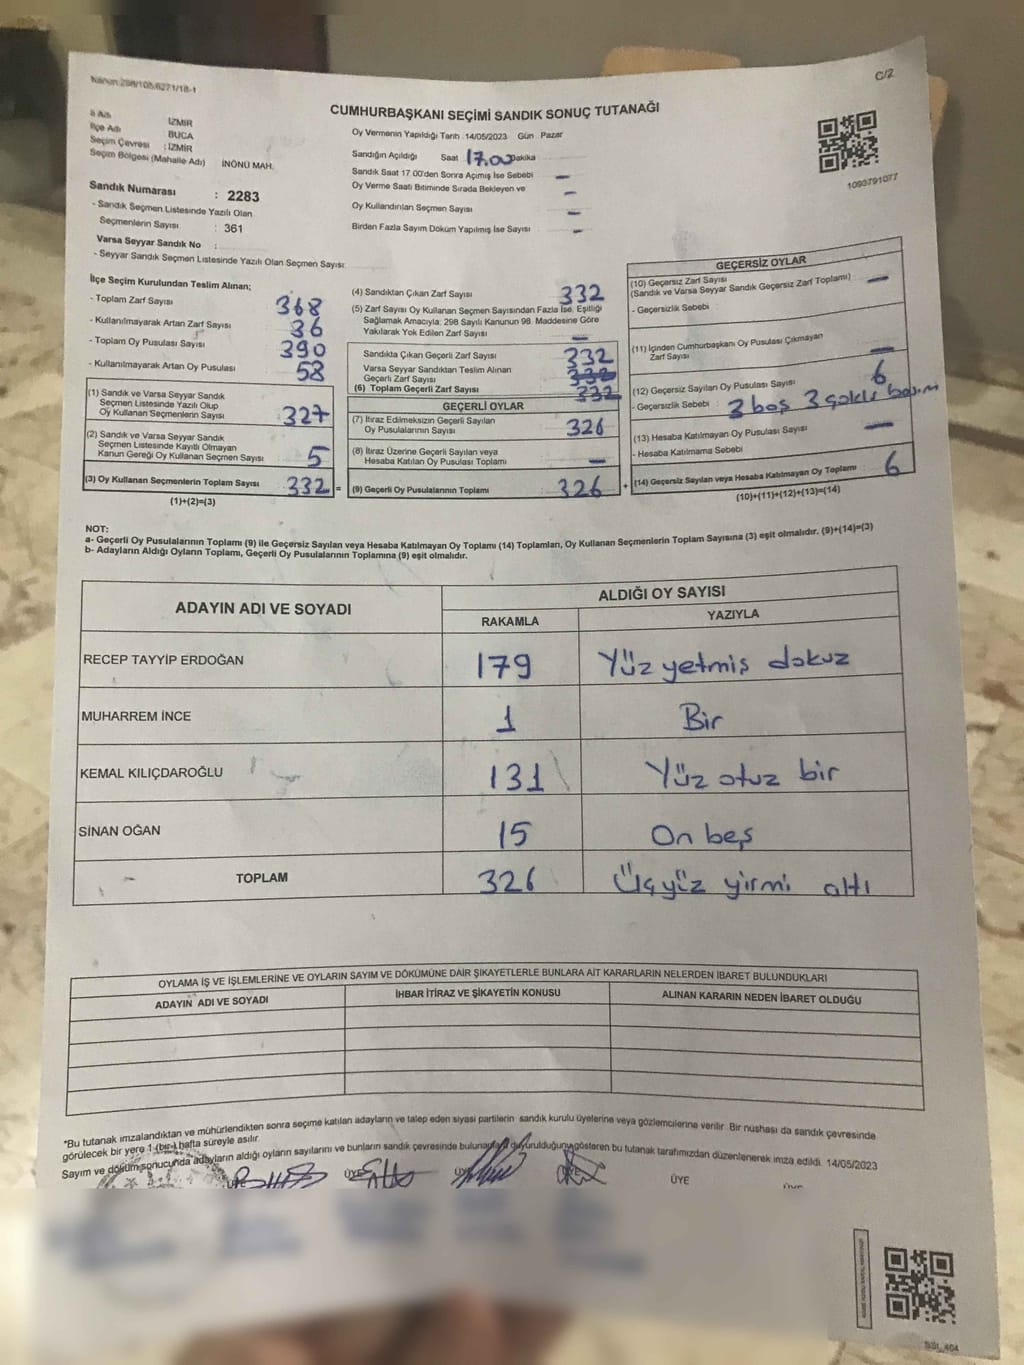 Kanun:298/105,6271/18-1
C/2
CUMHURBAŞKANI SEÇİMİ SANDIK SONUÇ TUTANAĞI
İl Adı : İZMİR
İlçe Adı : BUCA
Seçim Çevresi : İZMİR
Seçim Bölgesi (Mahalle Adı) İNÖNÜ MAH.
Sandık Numarası : 2283
- Sandık Seçmen Listesinde Yazılı Olan
Seçmenlerin Sayısı : 361
Varsa Seyyar Sandık No :
- Seyyar Sandık Seçmen Listesinde Yazılı Olan Seçmen Sayısı:
Oy Vermenin Yapıldığı Tarih :14/05/2023 Gün : Pazar
Sandığın Açıldığı Saat 17.00 Dakika
Sandık Saat 17.00'den Sonra Açımış İse Sebebi —
Oy Verme Saati Bitiminde Sırada Bekleyen ve —
Oy Kullandırılan Seçmen Sayısı —
Birden Fazla Sayım Döküm Yapılmış İse Sayısı —
1093791077
İlçe Seçim Kurulundan Teslim Alınan;
- Toplam Zarf Sayısı 368
- Kullanılmayarak Artan Zarf Sayısı 36
- Toplam Oy Pusulası Sayısı 390
- Kullanılmayarak Artan Oy Pusulası 58
(1) Sandık ve Varsa Seyyar Sandık
Seçmen Listesinde Yazılı Olup
Oy Kullanan Seçmenlerin Sayısı 327
(2) Sandık ve Varsa Seyyar Sandık
Seçmen Listesinde Kayıtlı Olmayan
Kanun Gereği Oy Kullanan Seçmen Sayısı 5
(3) Oy Kullanan Seçmenlerin Toplam Sayısı 332 =
(1)+(2)=(3)
(4) Sandıktan Çıkan Zarf Sayısı 332
(5) Zarf Sayısı Oy Kullanan Seçmen Sayısından Fazla İse, Eşitliği
Sağlamak Amacıyla; 298 Sayılı Kanunun 98. Maddesine Göre
Yakılarak Yok Edilen Zarf Sayısı —
Sandıkta Çıkan Geçerli Zarf Sayısı 332
Varsa Seyyar Sandıktan Teslim Alınan
Geçerli Zarf Sayısı 332
(6) Toplam Geçerli Zarf Sayısı 332
GEÇERLİ OYLAR
(7) İtiraz Edilmeksizin Geçerli Sayılan
Oy Pusulalarının Sayısı 326
(8) İtiraz Üzerine Geçerli Sayılan veya
Hesaba Katılan Oy Pusulası Toplamı —
(9) Geçerli Oy Pusulalarının Toplamı 326 +
GEÇERSİZ OYLAR
(10) Geçersiz Zarf Sayısı
(Sandık ve Varsa Seyyar Sandık Geçersiz Zarf Toplamı) —
- Geçersizlik Sebebi
(11) İçinden Cumhurbaşkanı Oy Pusulası Çıkmayan
Zarf Sayısı —
(12) Geçersiz Sayılan Oy Pusulası Sayısı 6
- Geçersizlik Sebebi : 3 boş 3 çoklu basım
(13) Hesaba Katılmayan Oy Pusulası Sayısı —
- Hesaba Katılmama Sebebi
(14) Geçersiz Sayılan veya Hesaba Katılmayan Oy Toplamı 6
(10)+(11)+(12)+(13)=(14)
NOT:
a- Geçerli Oy Pusulalarının Toplamı (9) ile Geçersiz Sayılan veya Hesaba Katılmayan Oy Toplamı (14) Toplamları, Oy Kullanan Seçmenlerin Toplam Sayısına (3) eşit olmalıdır. (9)+(14)=(3)
b- Adayların Aldığı Oyların Toplamı, Geçerli Oy Pusulalarının Toplamına (9) eşit olmalıdır.
ADAYIN ADI VE SOYADI
ALDIĞI OY SAYISI
RAKAMLA YAZIYLA
RECEP TAYYİP ERDOĞAN 179 Yüz yetmiş dokuz
MUHARREM İNCE 1 Bir
KEMAL KILIÇDAROĞLU 131 Yüz otuz bir
SİNAN OĞAN 15 On beş
TOPLAM 326 Üçyüz yirmi altı
OYLAMA İŞ VE İŞLEMLERİNE VE OYLARIN SAYIM VE DÖKÜMÜNE DAİR ŞİKAYETLERLE BUNLARA AİT KARARLARIN NELERDEN İBARET BULUNDUKLARI
ADAYIN ADI VE SOYADI İHBAR İTİRAZ VE ŞİKAYETİN KONUSU ALINAN KARARIN NEDEN İBARET OLDUĞU
*Bu tutanak imzalandıktan ve mühürlendikten sonra seçime katılan adayların ve talep eden siyasi partilerin sandık kurulu üyelerine veya gözlemcilerine verilir. Bir nüshası da sandık çevresinde
görülecek bir yere 1 (bir) hafta süreyle asılır.
Sayım ve döküm sonucunda adayların aldığı oyların sayılarını ve bunların sandık çevresinde bulunanlara duyurulduğunu gösteren bu tutanak tarafımızdan düzenlenerek imza edildi. 14/05/2023
ÜYE ÜYE ÜYE ÜYE ÜYE